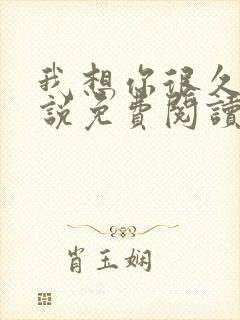 我想你很久
說免費閱讀
肖玉娴